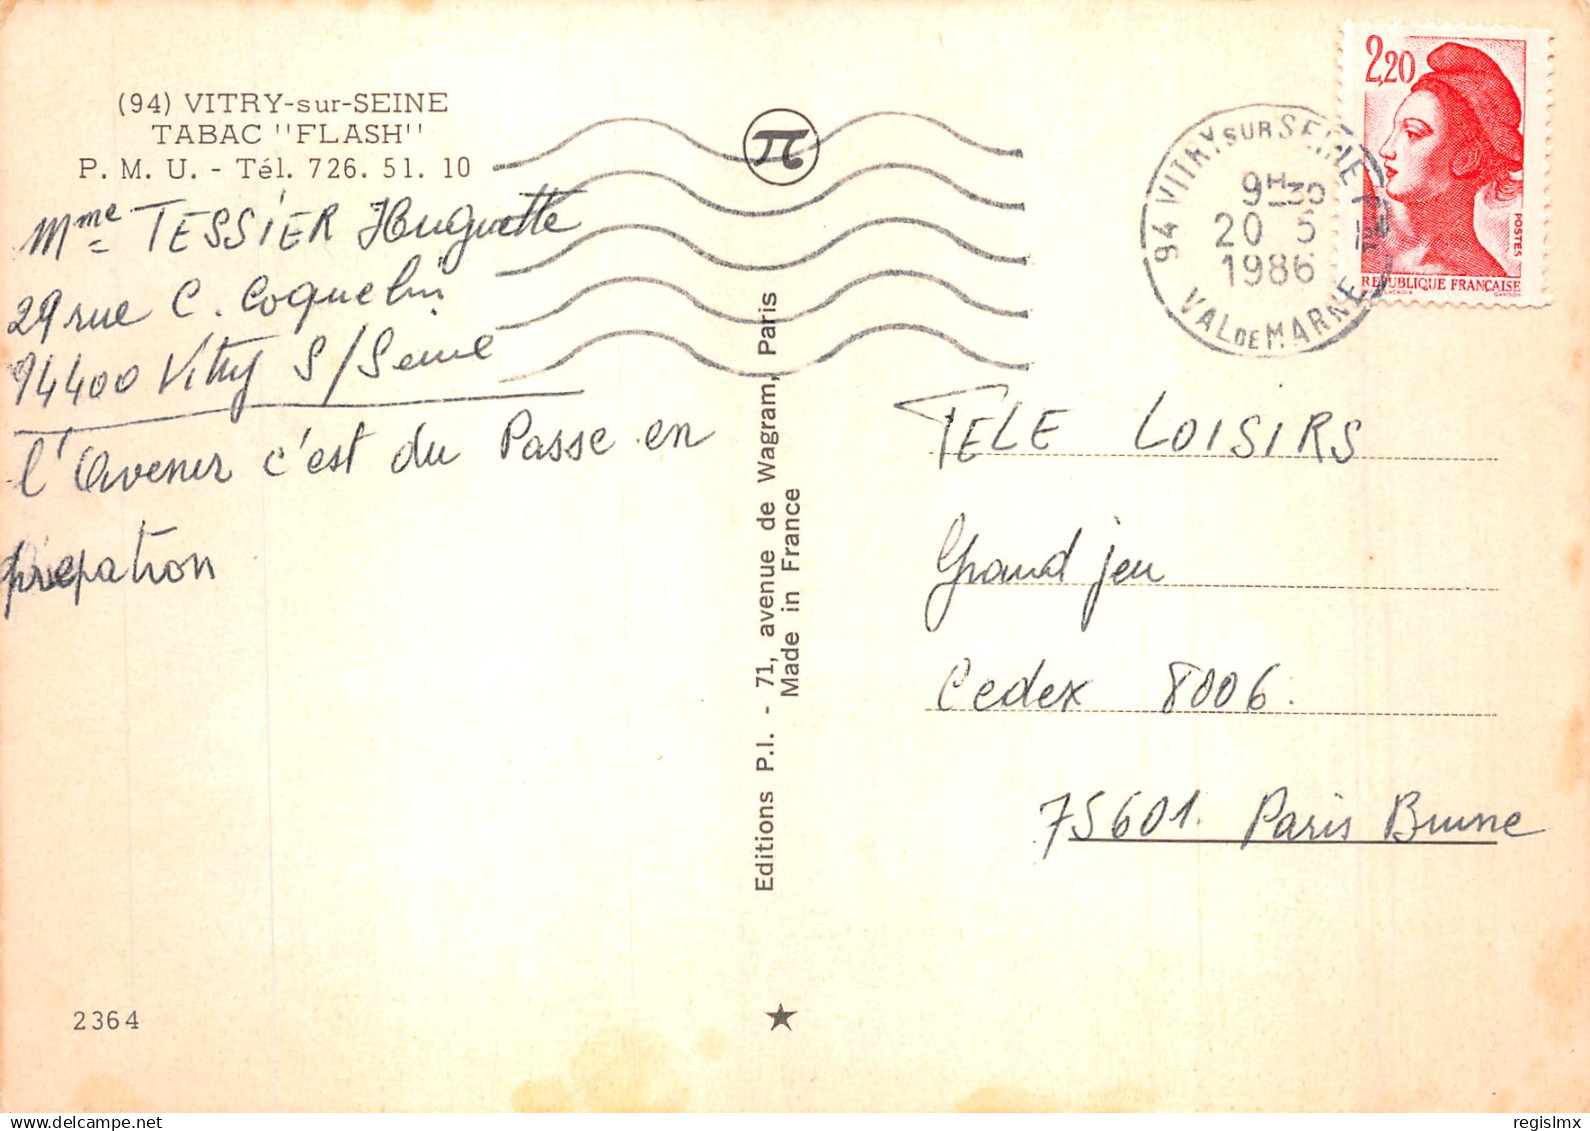 (94) VITRY-sur-SEINE
TABAC "FLASH"
P. M. U. - Tél. 726. 51. 10
Mme TESSIER Huguette
29 rue C. Coquelin
94400 Vitry S/Seine
l'Avenir c'est du Passe en
prepation
2364
Editions P.I. - 71, avenue de Wagram, Paris
Made in France
94 VITRY SUR SEINE
9H30
20 5
1986
VAL DE MARNE
2,20
POSTES
REPUBLIQUE FRANÇAISE
TELE LOISIRS
Grand jeu
Cedex 8006.
75601. Paris Brune
regisImx